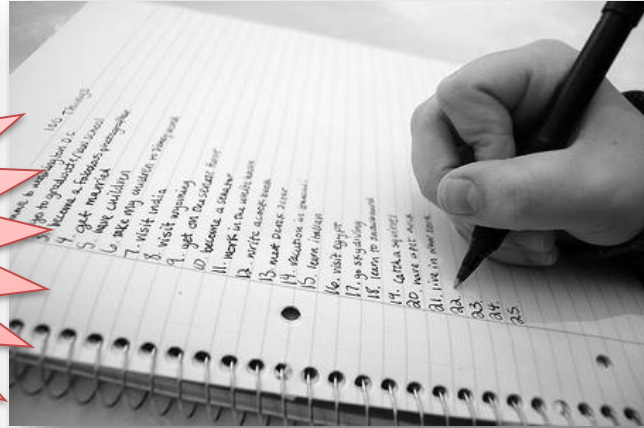 100 Things
to washington D.C
3. go to graduate/law school
4. become a fabulous photographer
5. get married
6. have children
7. take my children to disney world
8. visit India
9. visit wyoming
9. get on the honor
10. become a senator
11. work in the white house
12. write a cook book
13. meet
14. vacation in hawaii
15. learn italian
16. visit egypt
17. go skydiving
18. learn to snowboard
19. catch a squirrel
20. have a pet
21. live in new york
22.
23.
24.
25.